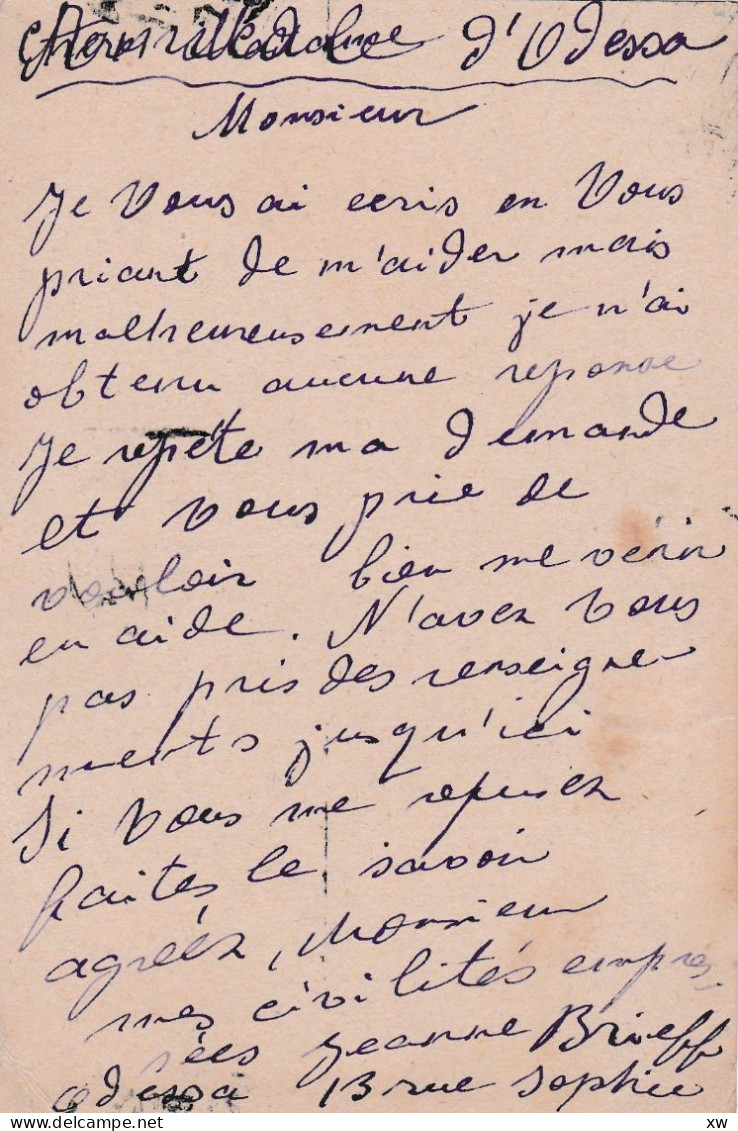 d'Odessa
Monsieur
Je Vous ai ecris en Vous
priant de m'aider mais
malheureusement je n'ai
obtenu aucune reponse
Je repète ma demande
et vous prie de
vouloir bien me venir
en aide. N'avez Vous
pas pris des renseigne
ments jusqu'ici
Si Vous me refusez
faites le savoir
agréez, Monsieur
mes civilités empres
sées Jeanne Brieff
Odessa 13 rue Sophie
xw